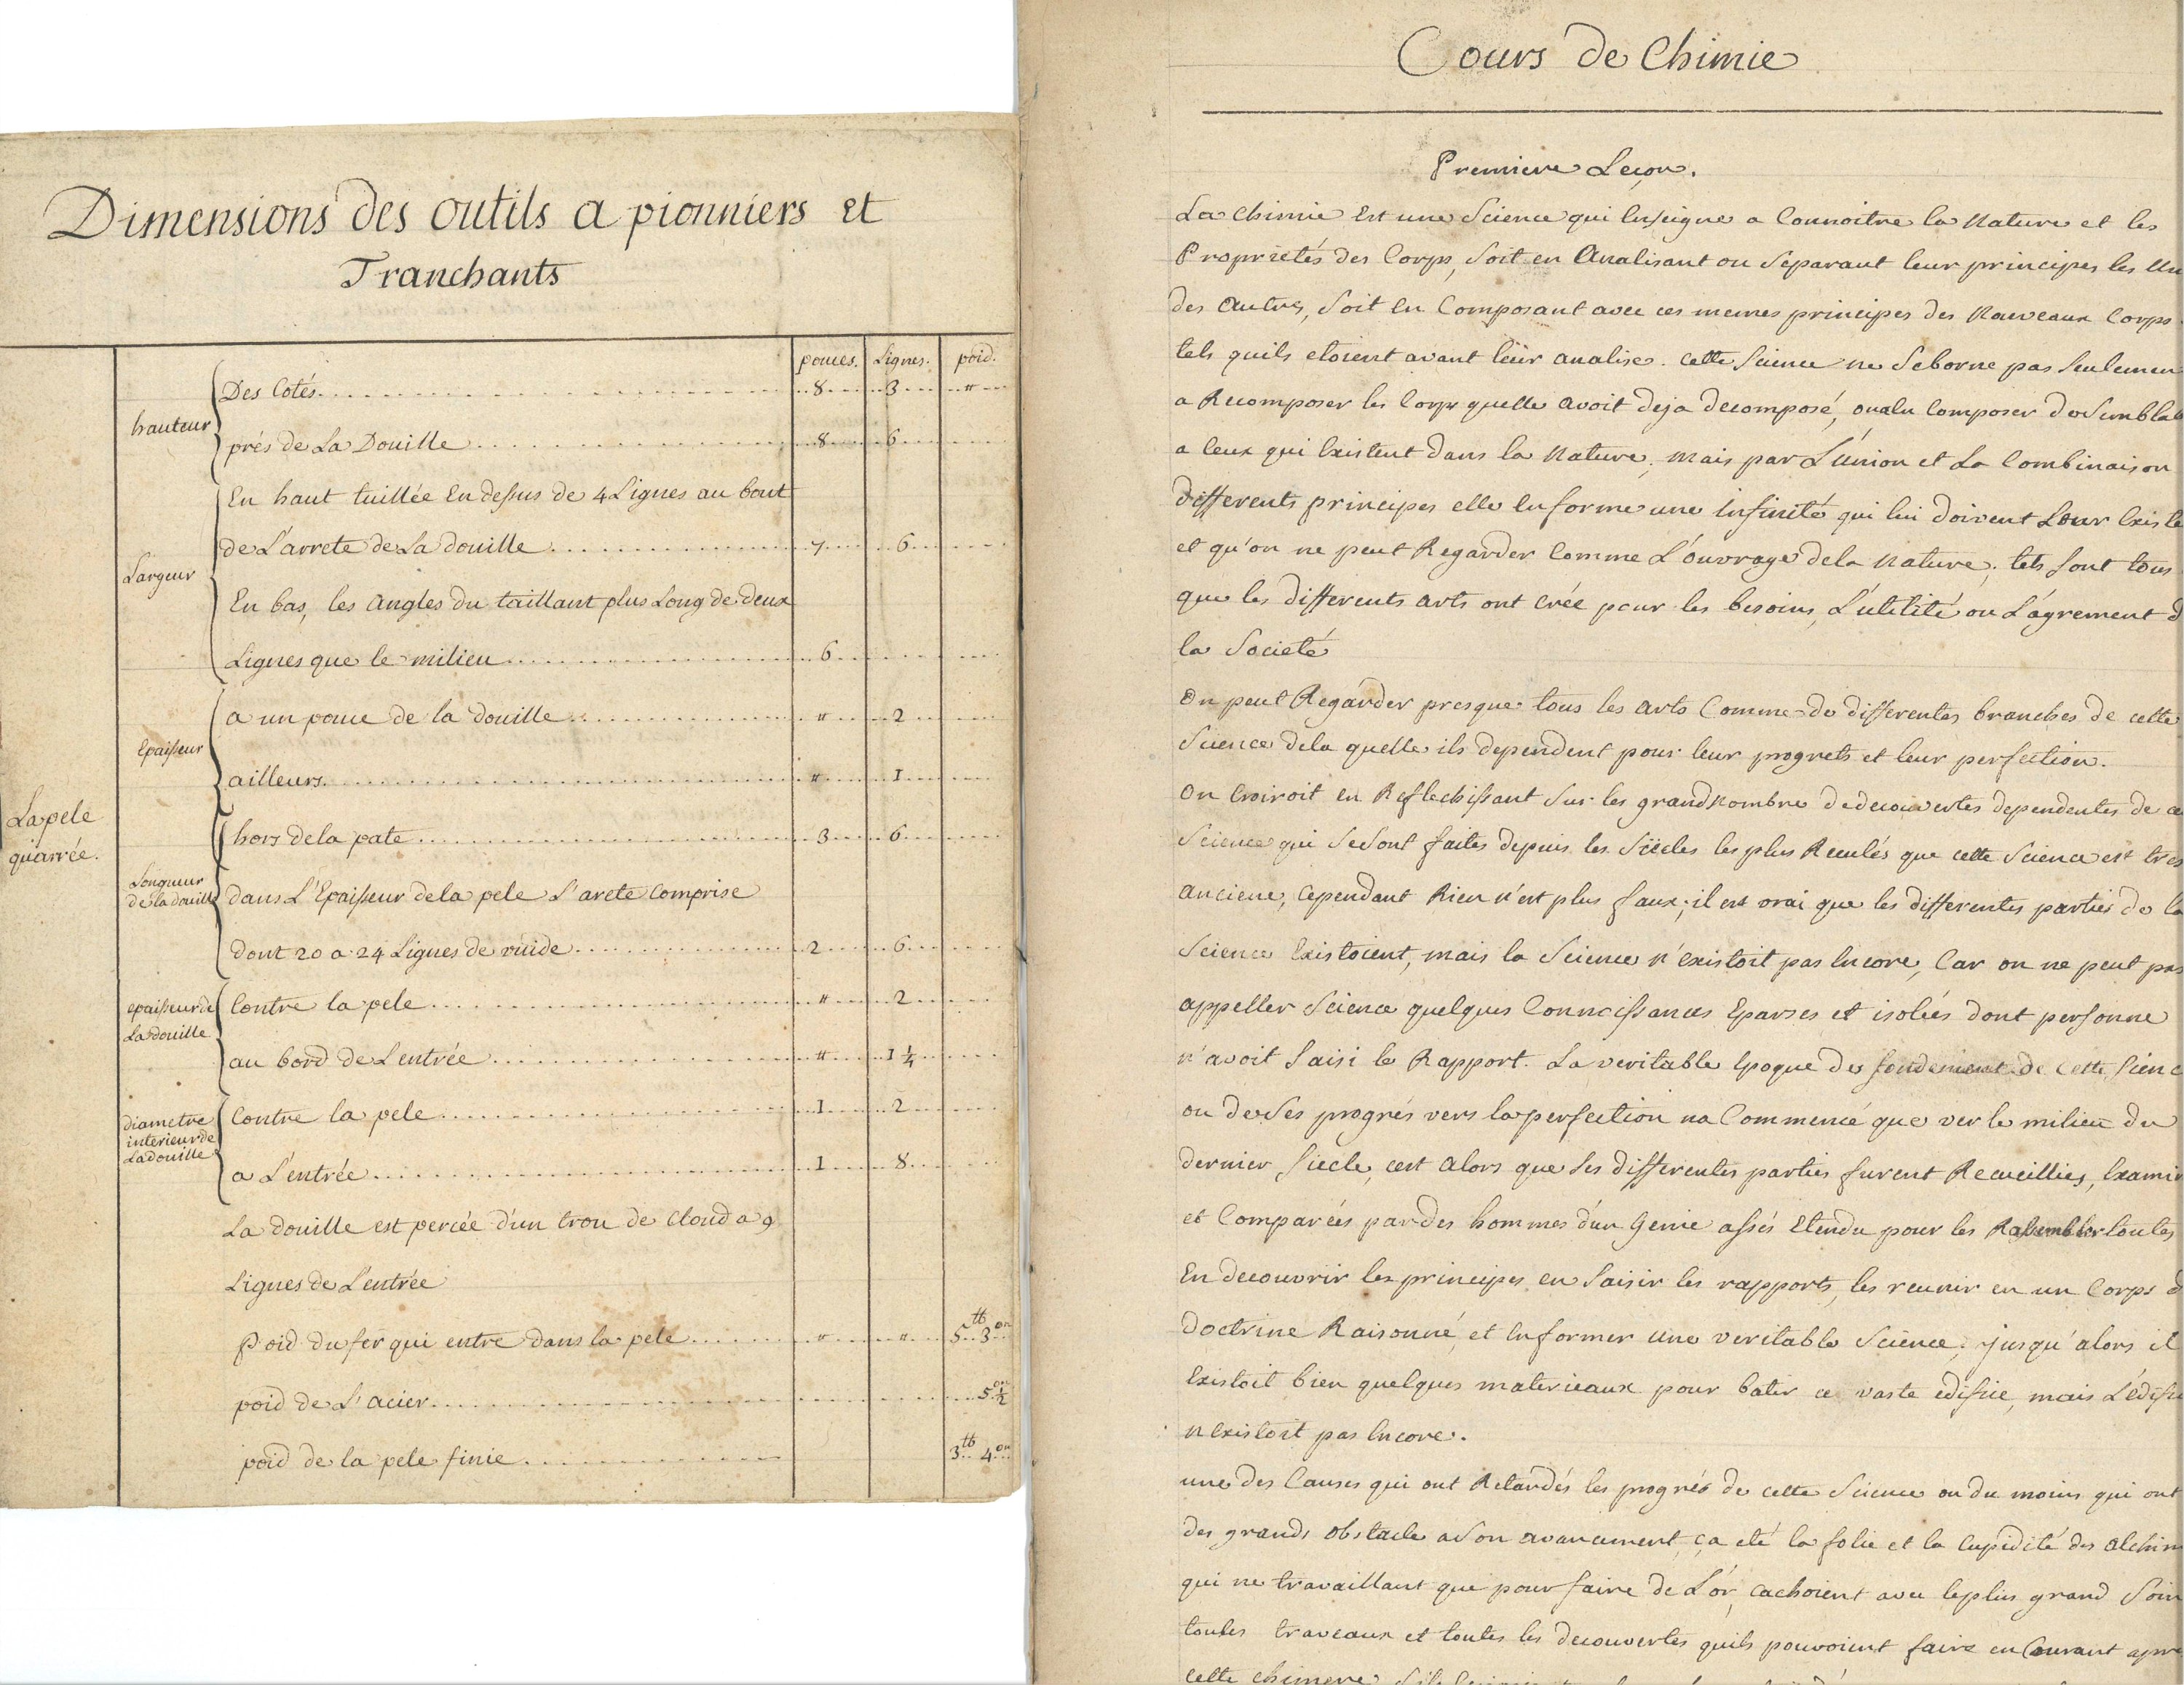 Dimensions des outils a pionniers et
Tranchants
pouces. Lignes. poid.
La pele quarrée.
hauteur
Des Cotés 8 3 "
prés de La Douille 8 6
Largeur
En haut tuillée En dessus de 4 Lignes au bout
de L'arrete de La douille 7 6
En bas, les angles du taillant plus Long de deux
Lignes que le milieu 6
Epaisseur
a un pouce de la douille " 2
ailleurs " 1
Longueur de la douille
hors de la pate 3 6
dans L'Epaisseur de la pele L'arete Comprise
dont 20 a 24 Lignes de vuide 2 6
epaisseur de La douille
Contre la pele " 2
au bord de L'entrée " 1 1/4
diametre interieur de La douille
Contre la pele 1 2
a L'entrée 1 8
La douille est percée d'un trou de Cloud a 9
Lignes de L'entrée
Poid du fer qui entre dans la pele " " 5 tb 3 on
poid de L'acier 5 on 1/2
poid de la pele finie 3 tb 4 on
Cours de Chimie
Premiere Leçon.
La Chimie Est une Science qui Enseigne a Connoitre la Nature et les
Proprietés des Corps, Soit en Analisant ou Separant leur principes les Un
des autres, Soit En Composant avec ces memes principes des Nouveaux Corps
tels quils etoient avant leur analise. cette Science ne Se borne pas Seulemen
a Recomposer les Corps quelle avoit deja decomposé, ou a En Composer de Semblab
a Ceux qui Existent dans la Nature, mais par L'union et La Combinaison
differents principes elle En forme une infinité qui lui doivent Leur Existe
et qu'on ne peut Regarder Comme L'ouvrage de la Nature; tels sont tous
que les differents arts ont crée pour les besoins, L'utilité ou L'agrement d
la Societé
On peut Regarder presque tous les arts Comme de differentes branches de cette
Science de la quelle ils dependent pour leur progrets et leur perfection.
On Croiroit en Reflechissant Sur les grand Nombre de decouvertes dependentes de ce
Science qui Se Sont faites depuis les Siècles les plus Reculés que cette Science est tres
anciene, Cependant Rien n'est plus faux; il est vrai que les differentes parties de la
Science Existoient, mais la Science n'existoit pas Encore, Car on ne peut pas
appeller Science quelques Connoissances Eparses et isolées dont personne
n'avoit Saisi le Rapport. La veritable Epoque des fondement de cette Sienc
ou de Ses progrés vers la perfection na Commencé que ver le milieu du
dernier Siecle, cest alors que Ses differentes parties furent Recueillies, Examin
et Comparées par des hommes d'un Genie assés Etendu pour les Rassembler toutes
En decouvrir les principes en Saisir les rapports, les reunir en un Corps d
doctrine Raisonné, et En former une veritable Science; jusqu'alors il
Existoit bien quelques materieaux pour batir ce vaste edifice, mais L'edifi
n'existoit pas Encore.
une des Causes qui ont Retardés les progrés de cette Science ou du moins qui ont
des grands obstacle a Son avancement ça eté la folie et la Cupidité des alchim
qui ne travaillant que pour faire de L'or, cachoient avec le plus grand Soin
toutes traveaux et toutes les decouvertes quils pouvoient faire en Courant apre
cette chimere